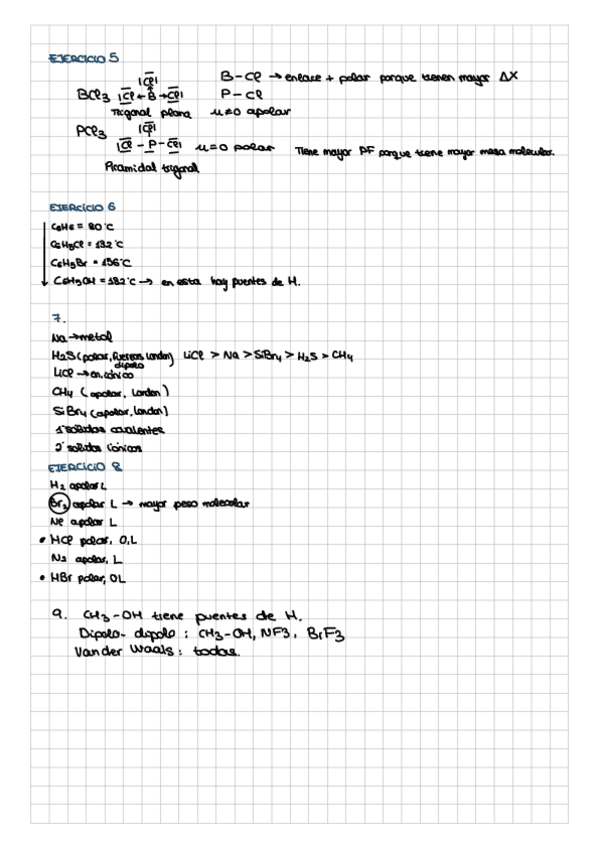 EJERCICIO 5
B-Cl → enlace + polar porque tienen mayor ΔX
|Cl|
BCl3 |Cl ← B → Cl| P-Cl
Trigonal plana μ≠0 apolar
PCl3 |Cl|
|Cl - P - Cl| μ=0 polar Tiene mayor PF porque tiene mayor masa molecular.
Piramidal trigonal
EJERCICIO 6
C6H6 = 80°C
C6H5Cl = 132°C
C6H5Br = 156°C
C6H5OH = 182°C → en esta hay puentes de H.
7.
Na → metal
H2S (polar, fuerzas London) LiCl > Na > SiBr4 > H2S > CH4
dipolo
LiCl → iónico
CH4 (apolar, London)
SiBr4 (apolar, London)
1º solidos covalentes
2º solidos iónicos
EJERCICIO 8
H2 apolar L
Br2 apolar L → mayor peso molecular
Ne apolar L
• HCl polar, D,L
N2 apolar, L
• HBr polar, DL
9. CH3-OH tiene puentes de H.
Dipolo-dipolo : CH3-OH, NF3, BrF3
Van der Waals : todas.